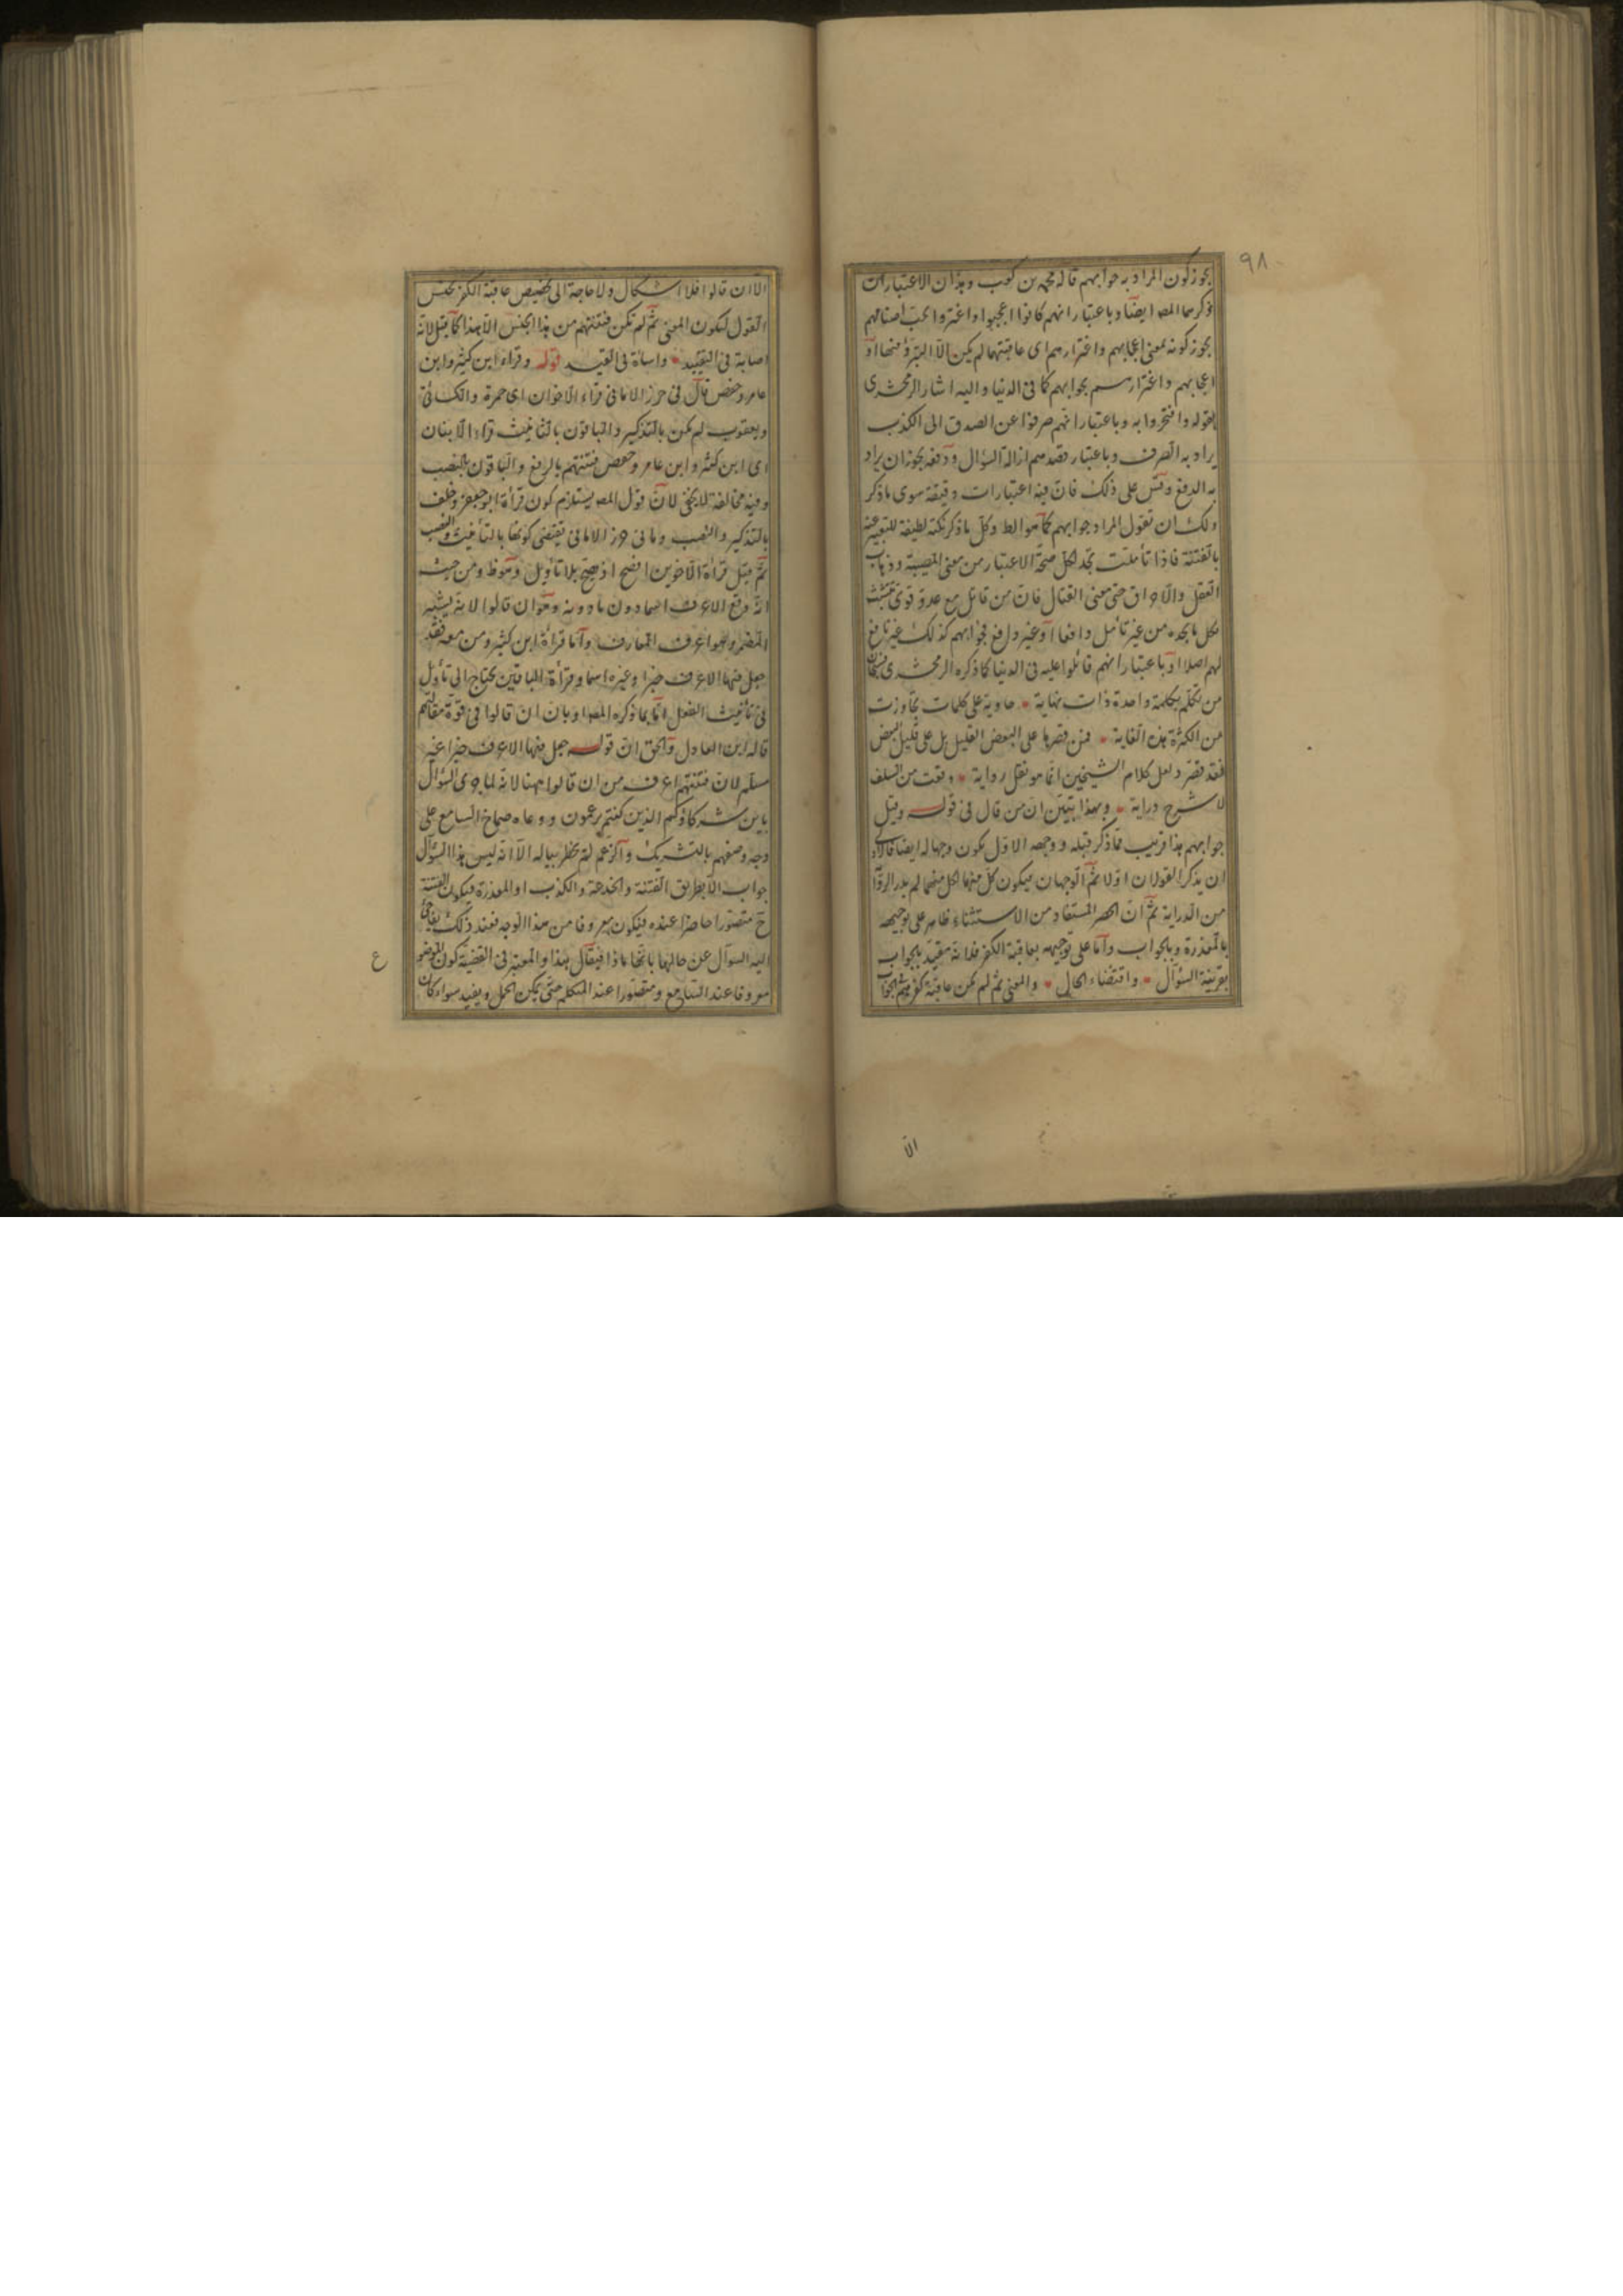 ٩٨
يجوز كون المراد به جوابهم قاله محمد بن كعب وهذان الاعتباران
ذكرهما المص ايضا وباعتبار انهم كانوا اعجبوا واغتروا بحب اصنامهم
يجوز كونه بمعنى اعجابهم واغترارهم اى عاقبتهما لم يكن الا التبرؤ منهما او
اعجابهم واغترارهم بجوابهم كما فى الدنيا واليه اشار الزمخشرى
بقوله وافتخروا به وباعتبار انهم صرفوا عن الصدق الى الكذب
يراد به الصرف وباعتبار قصدهم ازالة السؤال ودفعه يجوز ان يراد
به الدفع وقس على ذلك فان فيه اعتبارات دقيقة سوى ما ذكر
ولك ان تقول المراد جوابهم كما هو الظ وكل ما ذكر نكتة لطيفة للتعبير عنه
بالفتنة فاذا تأملت تجد لكل صحة الاعتبار من معنى المصيبة وذهاب
العقل والاحراق حتى معنى القتال فان من قاتل مع عدو قوى تشبث
بكل ما يجده من غير تأمل دافعا او غير دافع فجوابهم كذلك غير نافع
لهم اصلا او باعتبار انهم قاتلوا عليه فى الدنيا كما ذكره الزمخشرى فسبحان
من تكلم بكلمة واحدة ذات نهاية حاوية على كلمات تجاوزت
من الكثرة هذه الغاية فمن قصرها على البعض القليل بل على قليل البعض
فقد قصر ولعل كلام الشيخين انما هو نقل رواية وقعت من السلف
لا شرح دراية وبهذا تبين ان من قال فى قوله وقيل
جوابهم هذا قريب مما ذكر قبله ووجهه الاول يكون وجها له ايضا فالاولى
ان يذكر القولان اولا ثم الوجهان ليكون كل منهما لكل منهما لم يدر الرواية
من الدراية ثم ان الحصر المستفاد من الاستثناء ظاهر على توجيهه
بالمعذرة وبالجواب واما على توجيهه بعاقبة الكفر فلانه مقيد بالجواب
بقرينة السؤال واقتضاء الحال والمعنى ثم لم يكن عاقبة كفرهم الجواب
الا
الا ان قالوا فلا اشكال ولا حاجة الى تخصيص عاقبة الكفر بجنس
القول ليكون المعنى ثم لم تكن فتنتهم من هذا الجنس الا هذا كما قيل لانه
اصابة فى التقييد واساءة فى القيد قوله وقراء ابن كثير وابن
عامر وحفص قال فى حرز الامانى قراء الاخوان اى حمزة والكسائى
ويعقوب لم يكن بالتذكير والباقون بالتأنيث قراء الابنان
اى ابن كثير وابن عامر وحفص فتنتهم بالرفع والباقون بالنصب
وفيه مخالفة لا يخفى لان قول المص يستلزم كون قرأة ابو جعفر وخلف
بالتذكير والنصب وما فى حرز الامانى يقتضى كونها بالتأنيث والنصب
ثم قيل قرأة الاخوين افصح اذ صح بلا تأويل وهو ظ ومن حيث
انه وقع الاعرف اسما دون ما دونه وهو ان قالوا لانه يشبه
المضمر وهو اعرف المعارف واما قرأة ابن كثير ومن معه فقد
جعل فيها الاعرف خبرا وغيره اسما وقرأة الباقين يحتاج الى تأويل
فى تأنيث الفعل اما بما ذكره المص او بان ان قالوا فى قوة مقالتهم
قاله ابن العادل والحق ان قوله جعل فيها الاعرف خبرا غير
مسلم لان فتنتهم اعرف من ان قالوا ههنا لانه لما جرى السؤال
باين شركاؤكم الذين كنتم تزعمون ووعاه صماخ السامع على
وجه وصفهم بالتشريك والزعم لم يخطر بباله الا انه ليس لهذا السؤال
جواب الا بطريق الفتنة والخدعة والكذب او المعذرة فيكون الفتنة
ح متصورا حاضرا عنده فيكون معروفا من هذا الوجه فعند ذلك
اليه السؤال عن حالها بانها ماذا فيقال هذا والمعتبر فى القضية كون الموضوع
معروفا عند السامع ومتصورا عند المتكلم حتى يمكن الحمل ويفيد سواء كان
ع